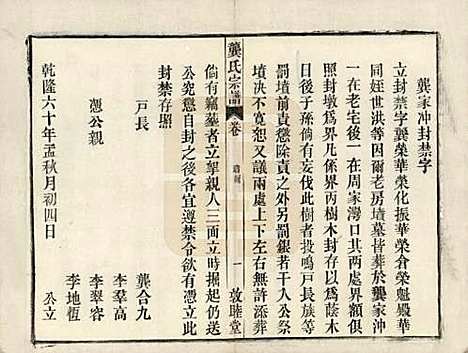 龔家冲封禁字
立封禁字龔榮華榮化振華榮倉榮魁殿華
同姪世洪等因爾老房墳墓皆葬於龔家冲
一在老宅後一在周家灣口其两處界額俱
照封墳一棺爲界丙樹木封存以爲蔭木
日後子孫倘有妄伐此樹者投鳴戸長族等
罰墳前責懲除責之外另罰銀若干人公祭
墳决不寬恕又議兩處上下左右無許添葬
倘有竊葬者立拏親人三面立時掘起仍送
公究懲自封之後各宜遵禁今欲有憑立
封禁存照
戸長 龔合九
憑公親 李羣高
李翠容
李地恆
乾隆六十年孟秋月初四日 公立
龔氏宗譜
卷
一
敦睦堂